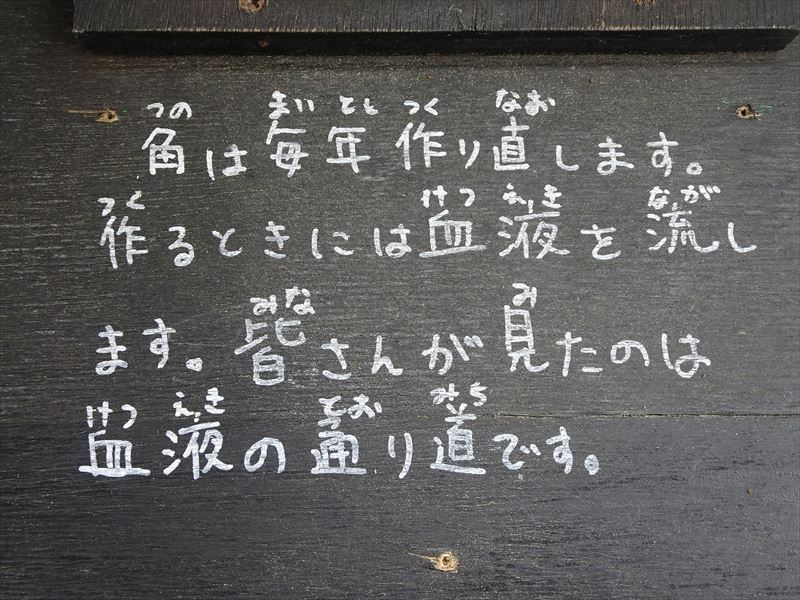 つの まい とし つく なお
角は毎年作り直します。
つく けつ えき なが
作るときには血液を流し
みな み
ます。皆さんが見たのは
けつ えき とお みち
血液の通り道です。